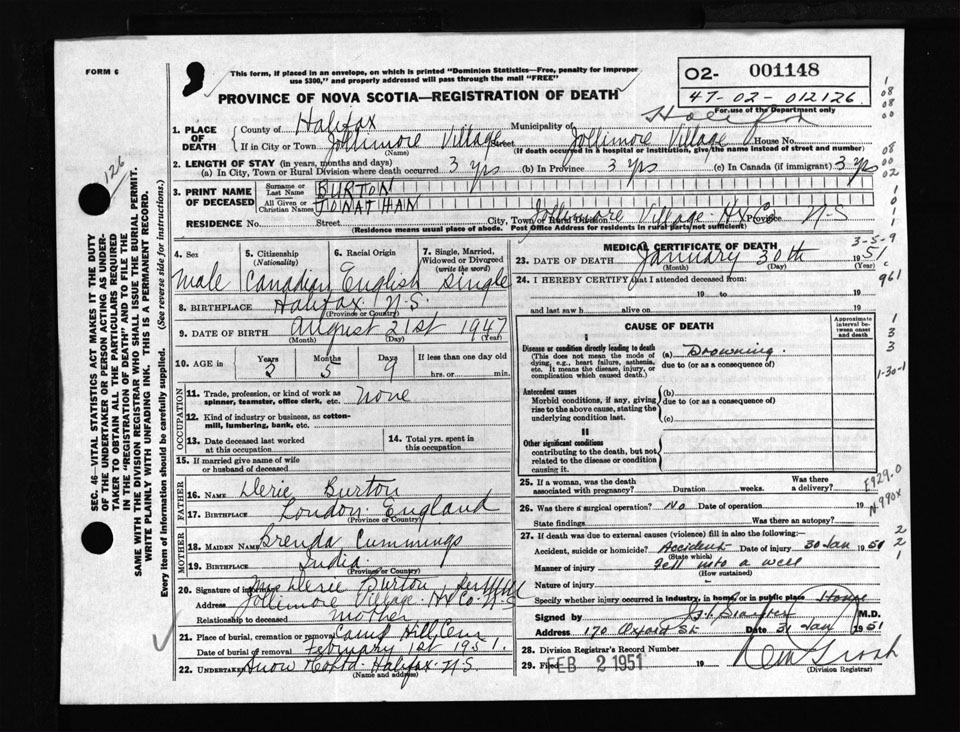 FORM 6
This form, if placed in an envelope, on which is printed "Dominion Statistics—Free, penalty for improper
use $300," and properly addressed will pass through the mail "FREE"
PROVINCE OF NOVA SCOTIA—REGISTRATION OF DEATH
02- 001148
47-02-012126
For use of the Department only
126
SEC. 46—VITAL STATISTICS ACT MAKES IT THE DUTY
OF THE UNDERTAKER OR PERSON ACTING AS UNDER-
TAKER TO OBTAIN ALL THE PARTICULARS REQUIRED
IN THE "REGISTRATION OF DEATH" AND TO FILE THE
SAME WITH THE DIVISION REGISTRAR WHO SHALL ISSUE THE BURIAL PERMIT.
WRITE PLAINLY WITH UNFADING INK. THIS IS A PERMANENT RECORD.
Every item of information should be carefully supplied. (See reverse side for instructions.)
1. PLACE OF DEATH County of Halifax Municipality of Halifax
If in City or Town Jollimore Village Street Jollimore Village House No.
(Name) (If death occurred in a hospital or institution, give the name instead of street and number)
2. LENGTH OF STAY (in years, months and days)
(a) In City, Town or Rural Division where death occurred 3 yrs (b) In Province 3 yrs (c) In Canada (if immigrant) 3 yrs
3. PRINT NAME OF DECEASED Surname or Last Name BURTON
All Given or Christian Names JONATHAN
RESIDENCE No. Street City, Town or Rural Division Jollimore Village Hx Co Province N-S
(Residence means usual place of abode. Post Office Address for residents in rural parts not sufficient)
4. Sex 5. Citizenship (Nationality) 6. Racial Origin 7. Single, Married, Widowed or Divorced (write the word)
Male Canadian English Single
8. BIRTHPLACE Halifax N-S.
(Province or Country)
9. DATE OF BIRTH August 21st 1947
(Month) (Day) (Year)
10. AGE in Years Months Days If less than one day old
2 5 9 hrs. or min.
OCCUPATION
11. Trade, profession, or kind of work as spinner, teamster, office clerk, etc. None
12. Kind of industry or business, as cotton-mill, lumbering, bank, etc.
13. Date deceased last worked at this occupation 14. Total yrs. spent in this occupation
15. If married give name of wife or husband of deceased
FATHER
16. NAME Deric Burton
17. BIRTHPLACE London England
(Province or Country)
MOTHER
18. MAIDEN NAME Brenda Cummings
19. BIRTHPLACE India
(Province or Country)
20. Signature of informant Mrs Deric Burton
Address Jollimore Village Hx Co. N-S
Relationship to deceased Mother
21. Place of burial, cremation or removal Camp Hill Cem
Date of burial or removal February 1st 1951.
22. UNDERTAKER Snow Halifax N.S.
(Name and address)
MEDICAL CERTIFICATE OF DEATH
23. DATE OF DEATH January 30th 1951
(Month) (Day) (Year)
24. I HEREBY CERTIFY that I attended deceased from:
19 to 19
and last saw h alive on 19
CAUSE OF DEATH
Approximate interval between onset and death
I
Disease or condition directly leading to death (a) Drowning.
(This does not mean the mode of dying, e.g., heart failure, asthenia, etc. It means the disease, injury, or complication which caused death.) due to (or as a consequence of)
Antecedent causes (b)
Morbid conditions, if any, giving rise to the above cause, stating the underlying condition last. due to (or as a consequence of)
(c)
II
Other significant conditions
contributing to the death, but not related to the disease or condition causing it.
25. If a woman, was the death associated with pregnancy? Duration weeks. Was there a delivery?
26. Was there a surgical operation? No Date of operation 19
State findings Was there an autopsy?
27. If death was due to external causes (violence) fill in also the following:—
Accident, suicide or homicide? Accident Date of injury 30 Jan 1951
(State which)
Manner of injury Fell into a well
(How sustained)
Nature of injury
Specify whether injury occurred in industry, in home, or in public place Home
Signed by M.D.
Address 170 Oxford St. Date 31 Jan 1951
28. Division Registrar's Record Number
29. Filed FEB 2 1951 19
(Division Registrar)
3-5-9
961
1-30-1
E929.0
N990X